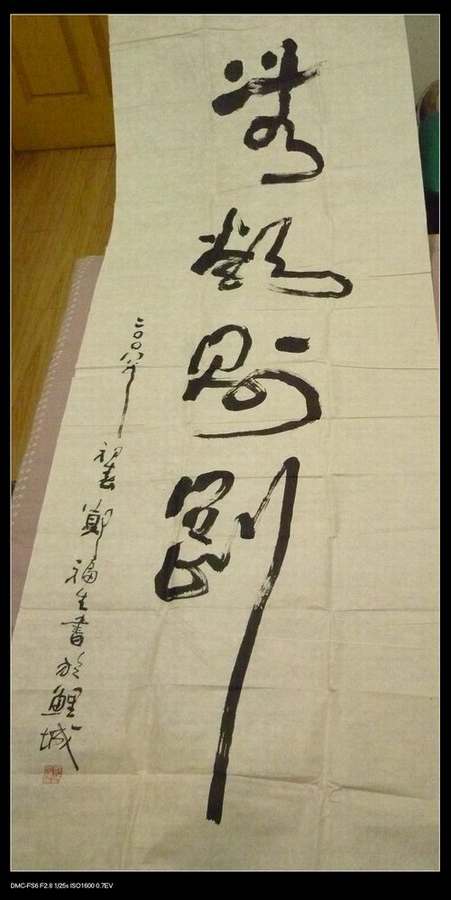 無欲則剛
二〇〇八年初春鄭福生書於鯉城
DMC-FS6 F2.8 1/25s ISO1600 0.7EV